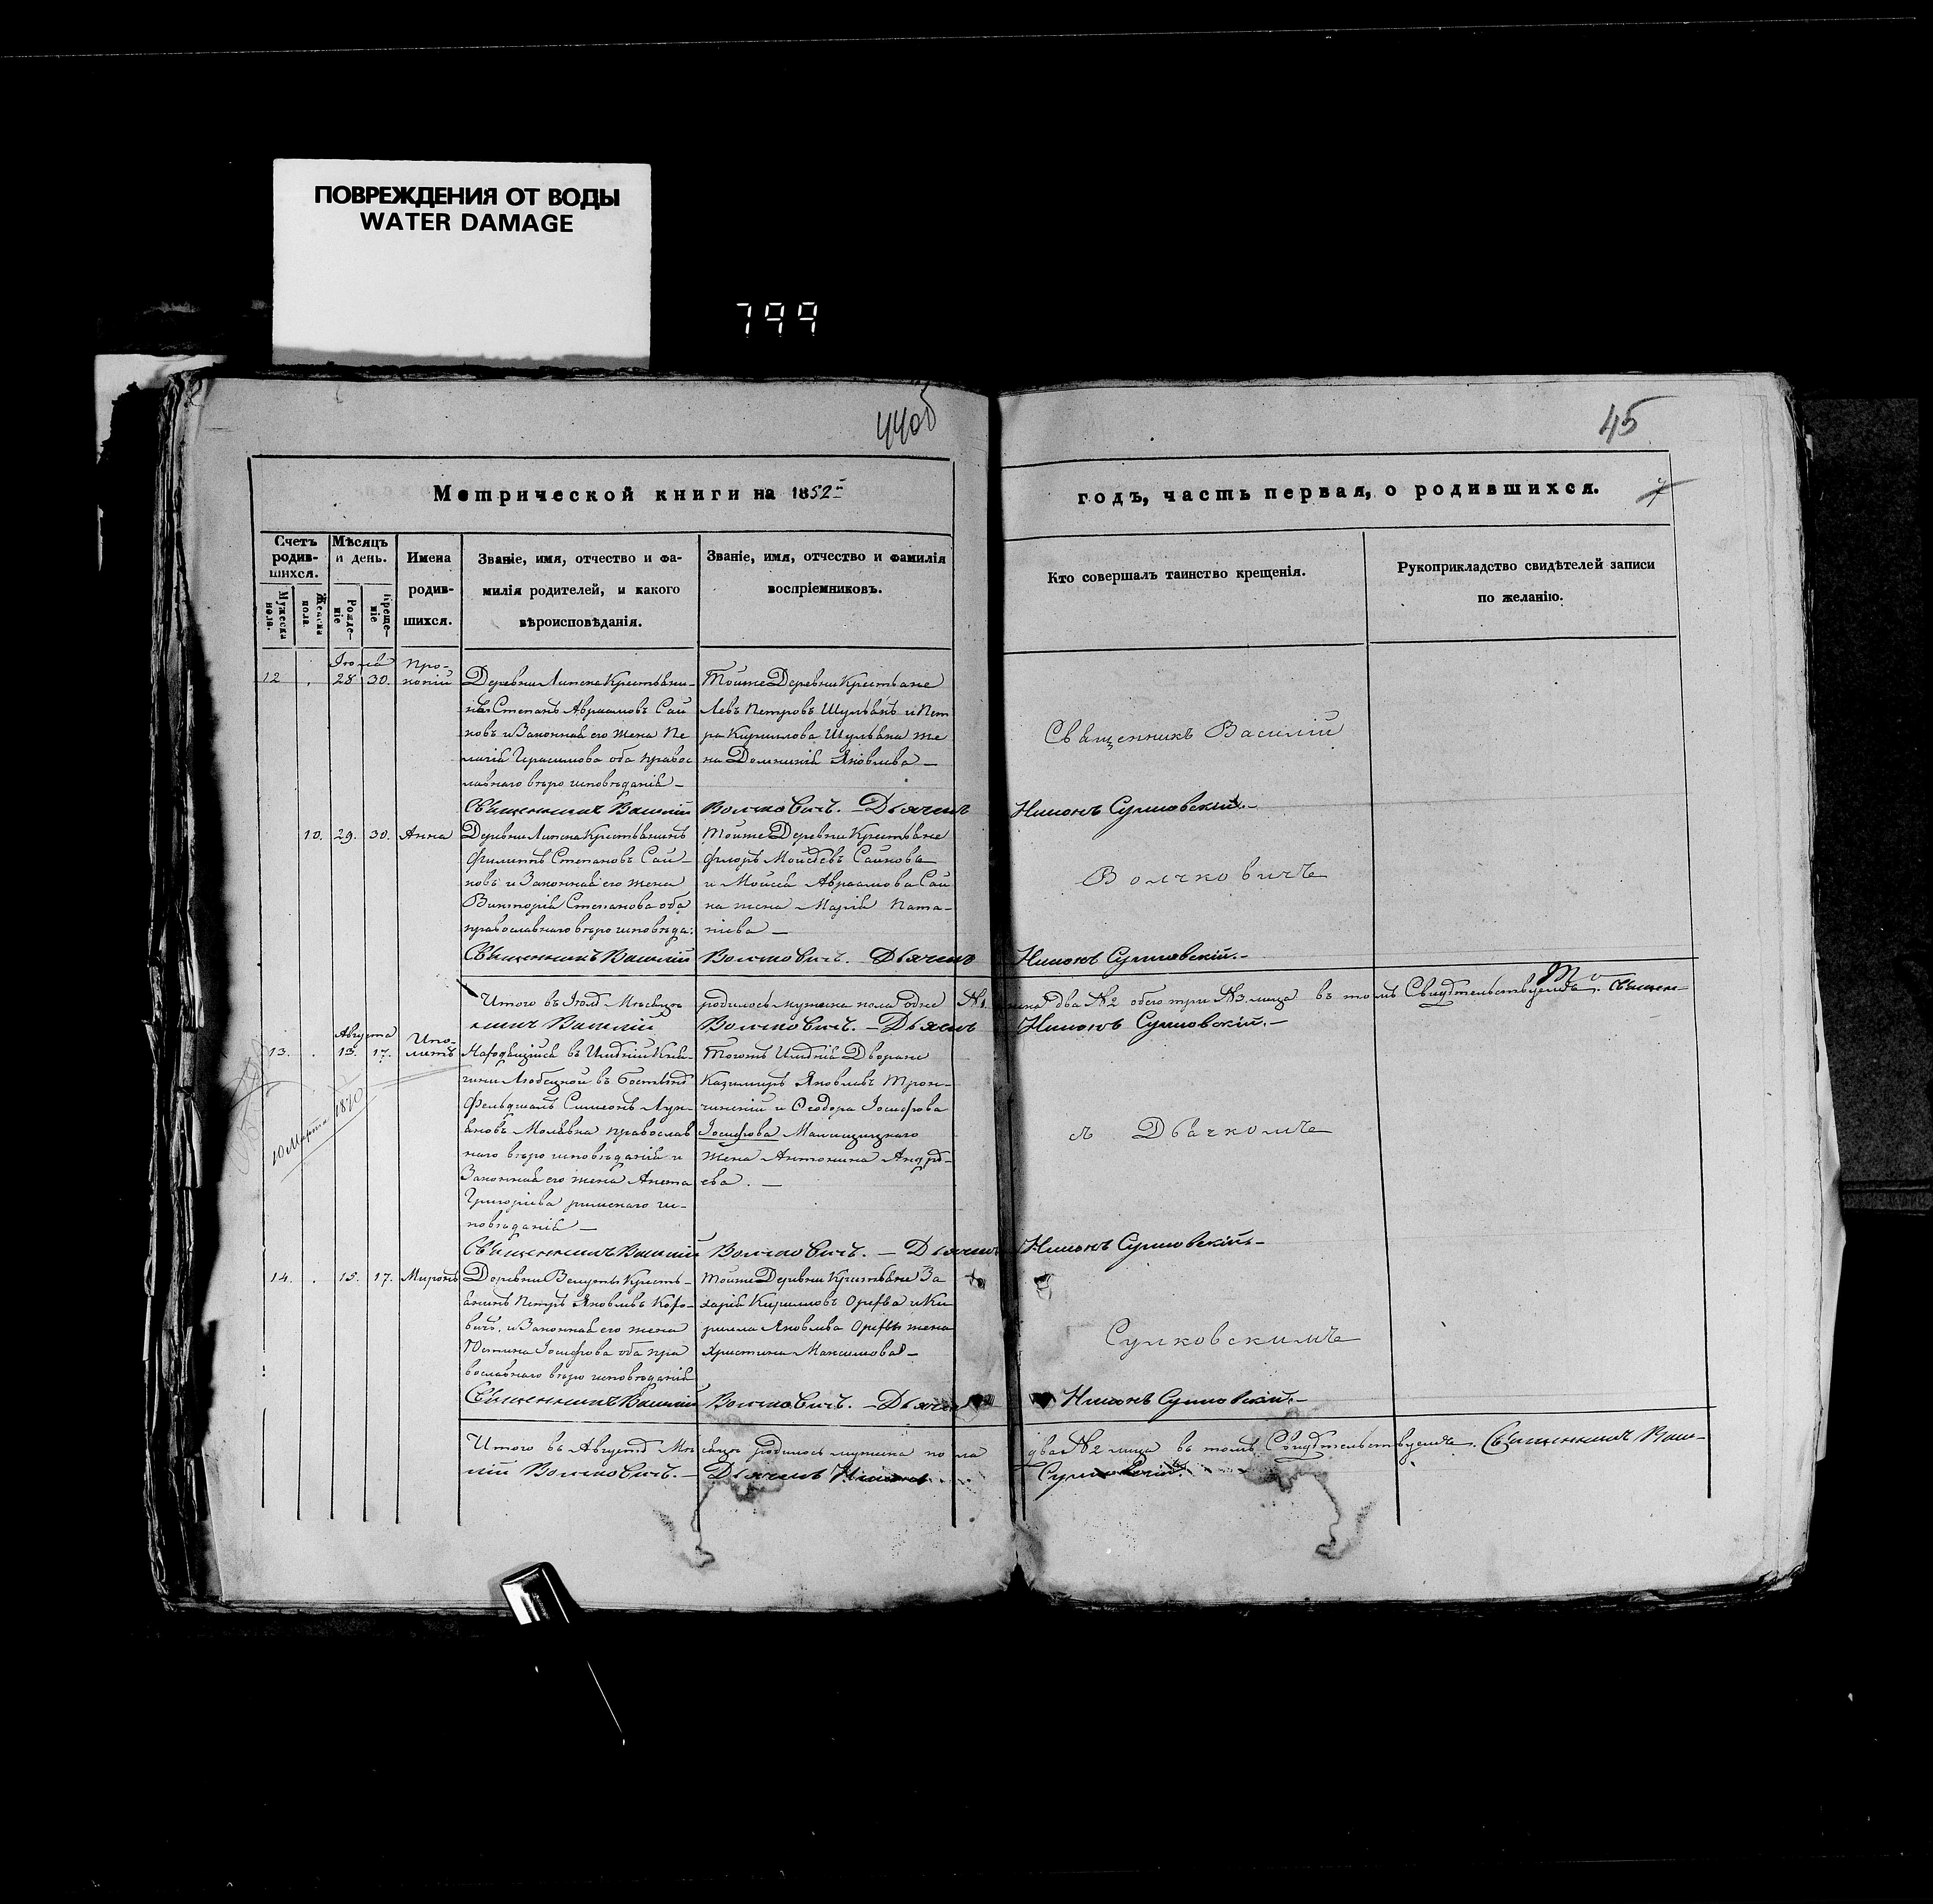 ПОВРЕЖДЕНИЯ ОТ ВОДЫ
WATER DAMAGE
799
44об
45
Метрической книги на 1852й
годъ, часть первая, о родившихся.
7
Счетъ родив-шихся.
Мужеска пола.
Женска пола.
Мѣсяцъ и день.
Рожде-ніе
Креще-ніе
Имена родив-шихся.
Званіе, имя, отчество и фа-
милія родителей, и какого
вѣроисповѣданія.
Званіе, имя, отчество и фамилія
воспріемниковъ.
Кто совершалъ таинство крещенія.
Рукоприкладство свидѣтелей записи
по желанію.
Іюля
12 . 28 30. Про-
копій
Деревни Липска Крестьяни-
нъ Степанъ Авраамовъ Сай
ковъ и Законная его жена Пе
лагія Герасимова оба правос
лавнаго вѣроисповѣданія —
Тойже Деревни Крестьяне
Левъ Петровъ Шульякъ и Пет
ра Кириллова Шульяка же
на Домникія Яковлева —
Священникъ Василій Волчковичъ. — Дьячекъ Никонъ Сулковскій. —
10. 29. 30. Анна
Деревни Липска Крестьянинъ
Филиппъ Степановъ Сай-
ковъ и Законная его жена
Викторія Степанова оба
православнаго вѣроисповѣда:
Тойже Деревни Крестьяне
Флоръ Моисеевъ Сайкова
и Моисея Авраамова Сай
ка жена Марія Пата-
піева —
Священникъ Василій Волчковичъ. Дьячекъ Никонъ Сулковскій. —
Итого въ Іюлѣ Мѣсяцѣ родилось мужеска пола одно №1 женска два №2 обего три №3. лица въ томъ Свидѣтельствуемъ. Священ-
никъ Василій Волчковичъ. — Дьячекъ Никонъ Сулковскій. —
Августа
13. . 13. 17. Ипо-
литъ
Находящійся въ Имѣніи Кня-
гини Любецкой въ
Фельдшалъ Симеонъ Лук-
яновъ Молявка православ
наго вѣроисповѣданія и
Законная его жена Анета
Григоріева римскаго ис-
повѣданія —
Тогожъ Имѣнія Дворяне
Казимиръ Яковлевъ Трон-
чинскій и Ѳеодора Іосифова
Іосифова
жена Антонина Андрѣ-
ева. —
10 Марта 1870
Священникъ Василій Волчковичъ. — Дьячекъ Никонъ Сулковскій —
14. . 15. 17. Миронъ
Деревни Велуты Кресть-
янинъ Петръ Яковлевъ Каро-
вичъ. и Законная его жена
Юстина Іосифова оба пра
вославнаго вѣроисповѣданія
Тойже Деревни Крестьяне За
харій Кирилловъ Орефва и Ки
рилла Яковлева Орефвы жена
Христина Максимова —
Священникъ Василій Волчковичъ. — Дьячекъ Никонъ Сулковскій. —
Итого въ Августѣ Мѣсяцѣ родилось мужеска пола два №2 лица въ томъ Свидѣтельствуемъ. Священникъ Васи-
лій Волчковичъ. — Дьячекъ Никонъ Сулковскій.
Священникъ Василій
Волчковичъ
съ Дьячкомъ
Сулковскимъ